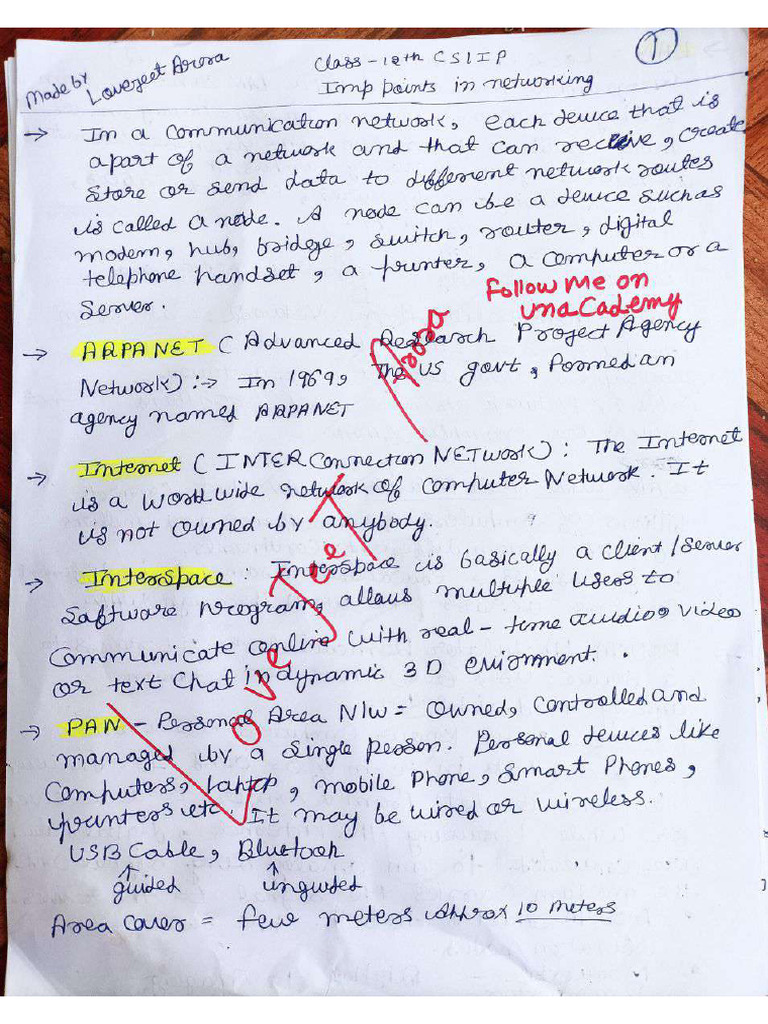 Made by Lovejeet Arora
Class - 12th CS/IP
Imp points in networking
1
→ In a communication network, each device that is
apart of a network and that can receive, create
store or send data to different network routes
is called a node. A node can be a device such as
modem, hub, bridge, switch, router, digital
telephone handset, a printer, a computer or a
server.
Follow Me on
unacademy
→ ARPANET (Advanced Research Project Agency
Network) :→ In 1969, The US govt, formed an
agency named ARPANET
→ Internet (INTERconnection NETwork) : The Internet
is a world wide network of computer Network. It
is not owned by anybody.
→ Interspace : Interspace is basically a client/server
software program, allows multiple users to
communicate online with real-time audio, video
or text chat in dynamic 3D enironment.
→ PAN - Personal Area N/w = owned, controlled and
managed by a single person. Personal devices like
computers, laptop, mobile Phone, Smart Phones,
printers etc. It may be wired or wireless.
USB Cable, Bluetooh
↑ ↑
guided unguided
Area cover = few meters approx 10 meters
LoveJeeT Arora